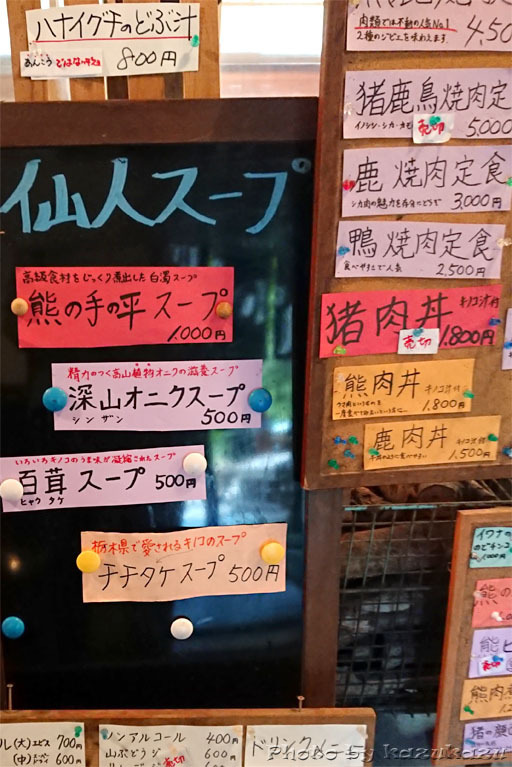 ハナイグチのどぶ汁
800円
仙人スープ
高級食材をじっくり煮出した白濁スープ
熊の手の平スープ
1.000円
精力のつく高山植物オニクの滋養スープ
深山オニクスープ
シンザン
500円
いろいろキノコのうま味が凝縮されたスープ
百茸スープ 500円
ヒャクタケ
栃木県で愛されるキノコのスープ
チチタケスープ 500円
肉類では不動の人気No.1
2種のジビエを味わえます。
4.50
猪鹿鳥焼肉定
イノシシ・シカ・カモ
売切
5,000
鹿 焼肉定食
3,000円
鴨 焼肉定食
食べやすさで人気
2,500円
猪肉丼 キノコ汁付
売切
1.800円
熊肉丼 キノコ汁付
1.800円
鹿肉丼 キノコ汁付
1.500円
イワナの
熊の
売切
熊肉
猪の
ル(大)ヱビス 700円
(中) 600円
ノンアルコール 400円
山ぶどう 600円
売切
ドリンクメ
Photo by kazukazu